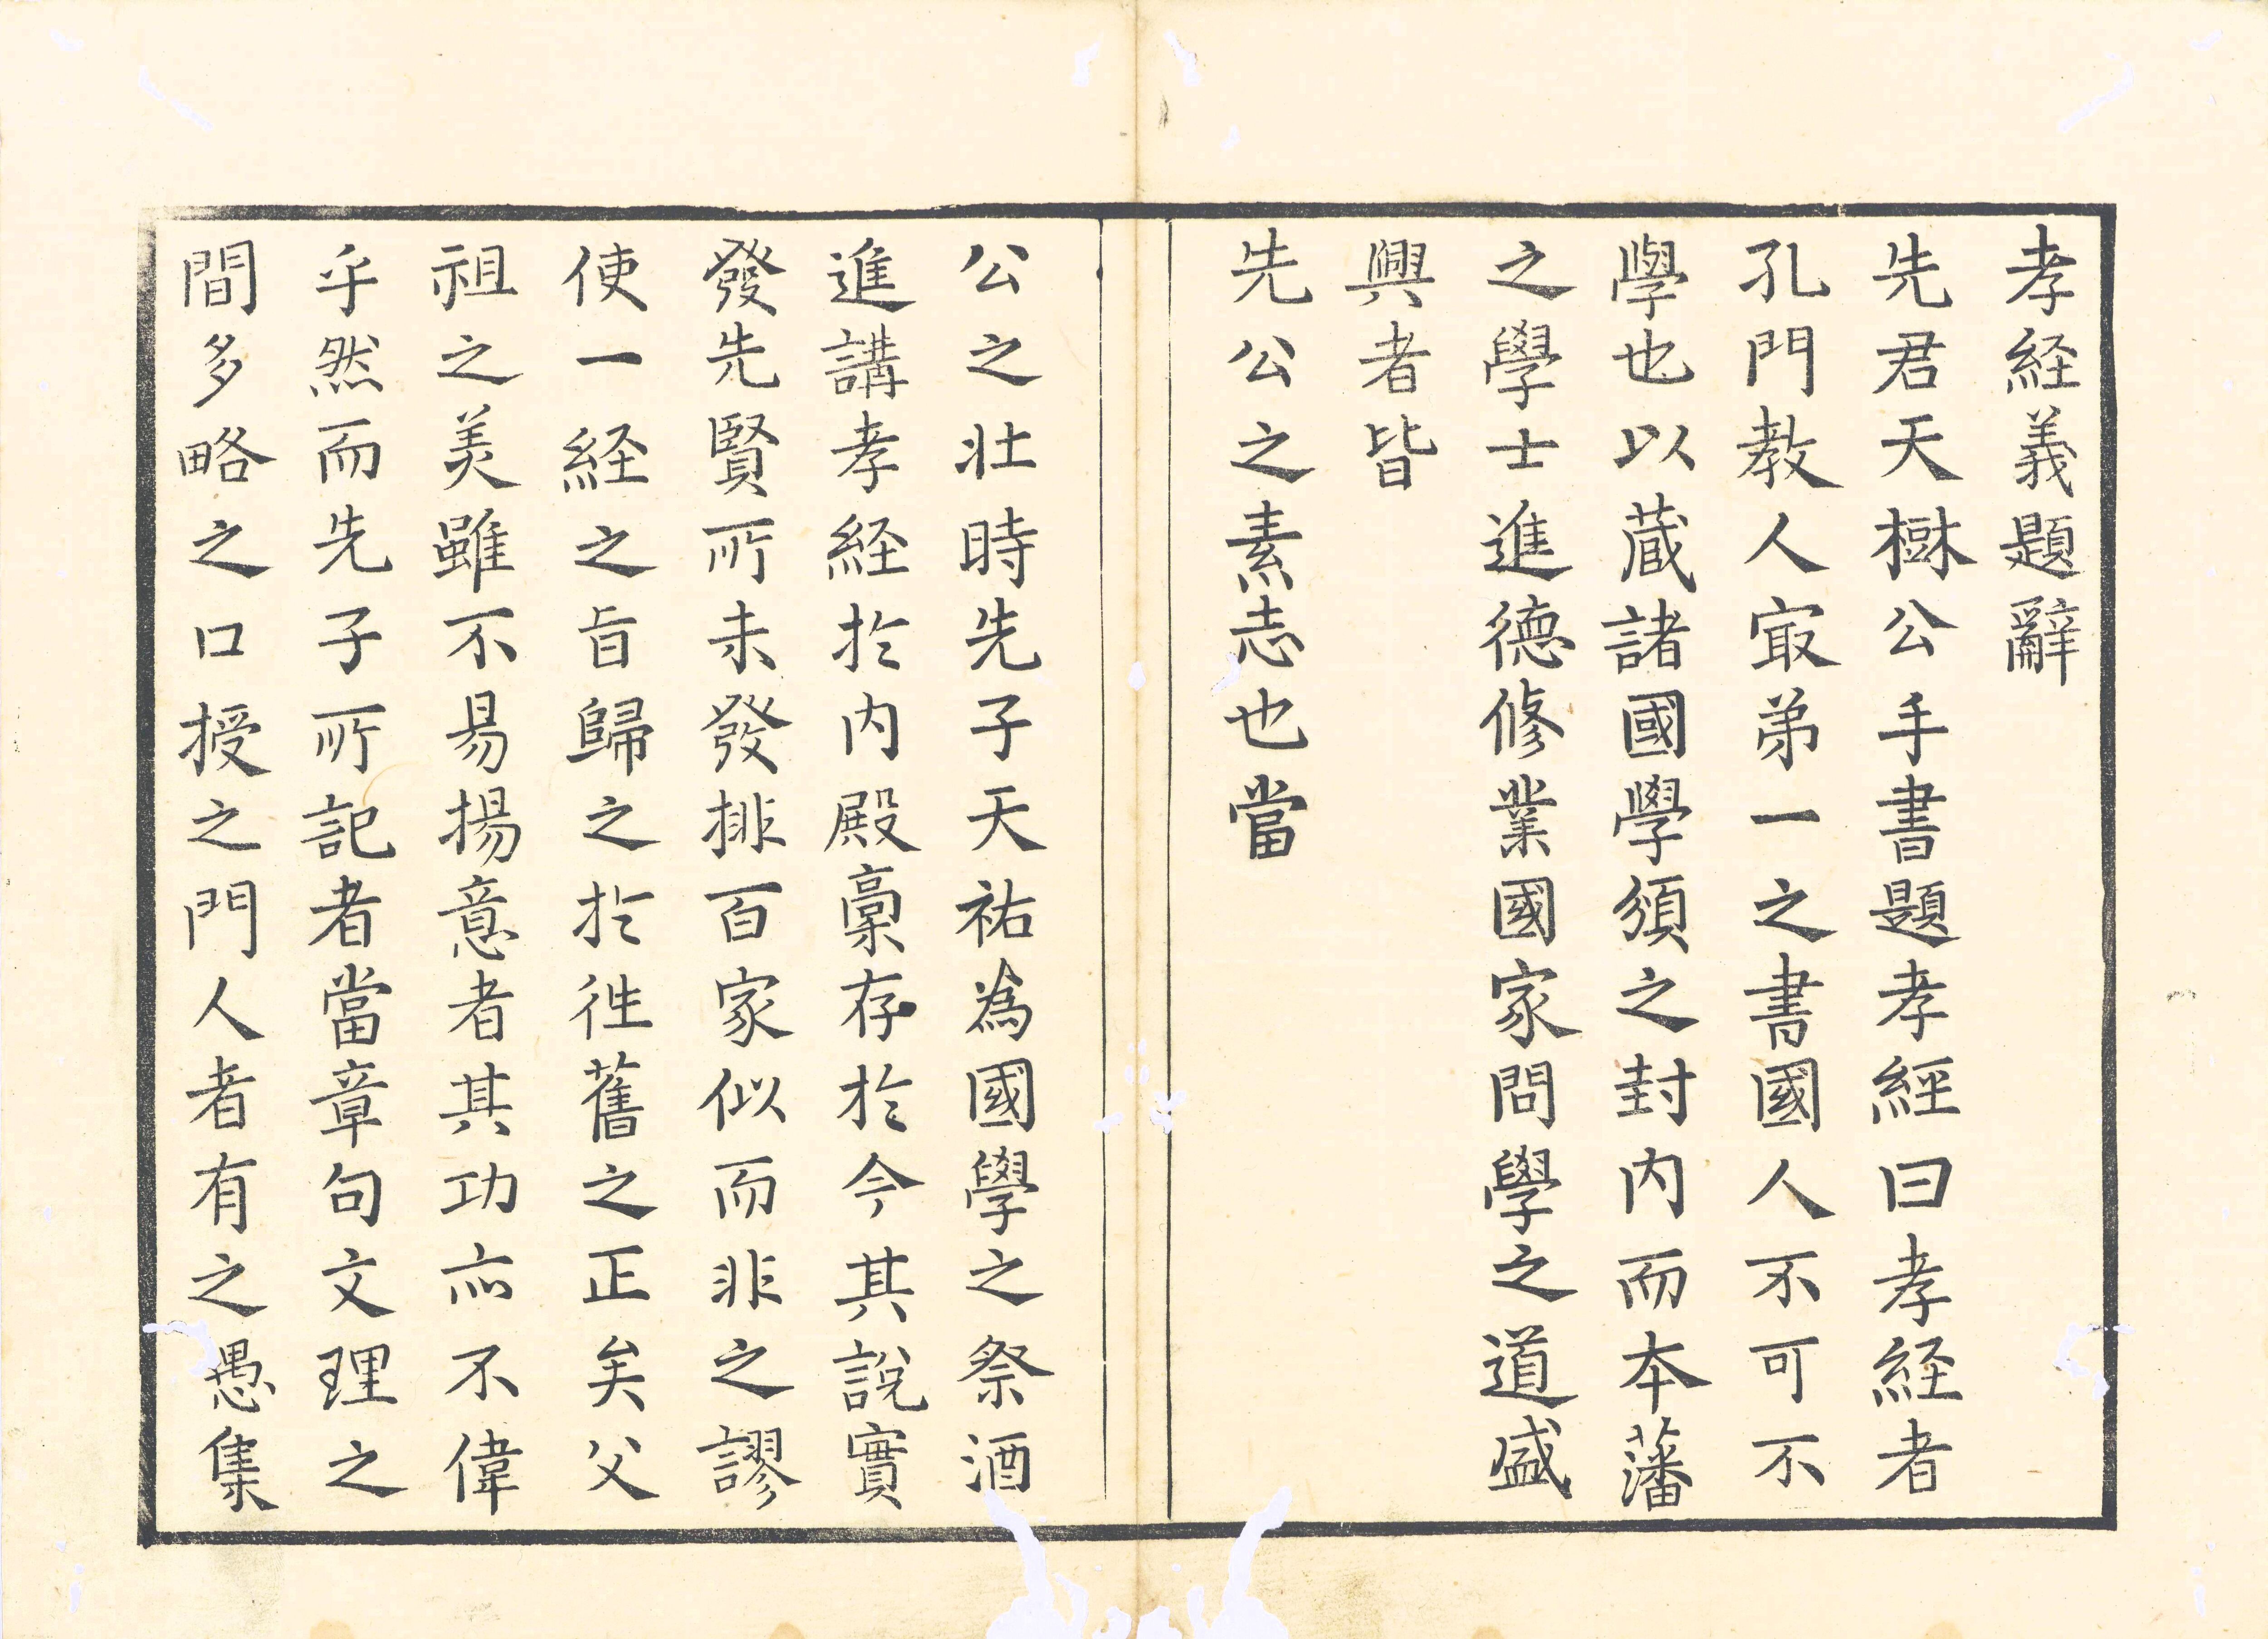 孝経義題辭
先君天樹公手書題孝經曰孝経者
孔門教人㝡弟一之書國人不可不
學也以蔵諸國學須之封内而本藩
之學士進德修業國家問學之道盛
興者皆
先公之素志也當
公之壮時先子天祐為國學之祭酒
進講孝経於内殿稾存於今其說實
發先賢所未發排百家似而非之謬
使一経之旨歸之於徃舊之正矣父
祖之美雖不易揚意者其功亦不偉
乎然而先子所記者當章句文理之
間多略之口授之門人者有之愚集